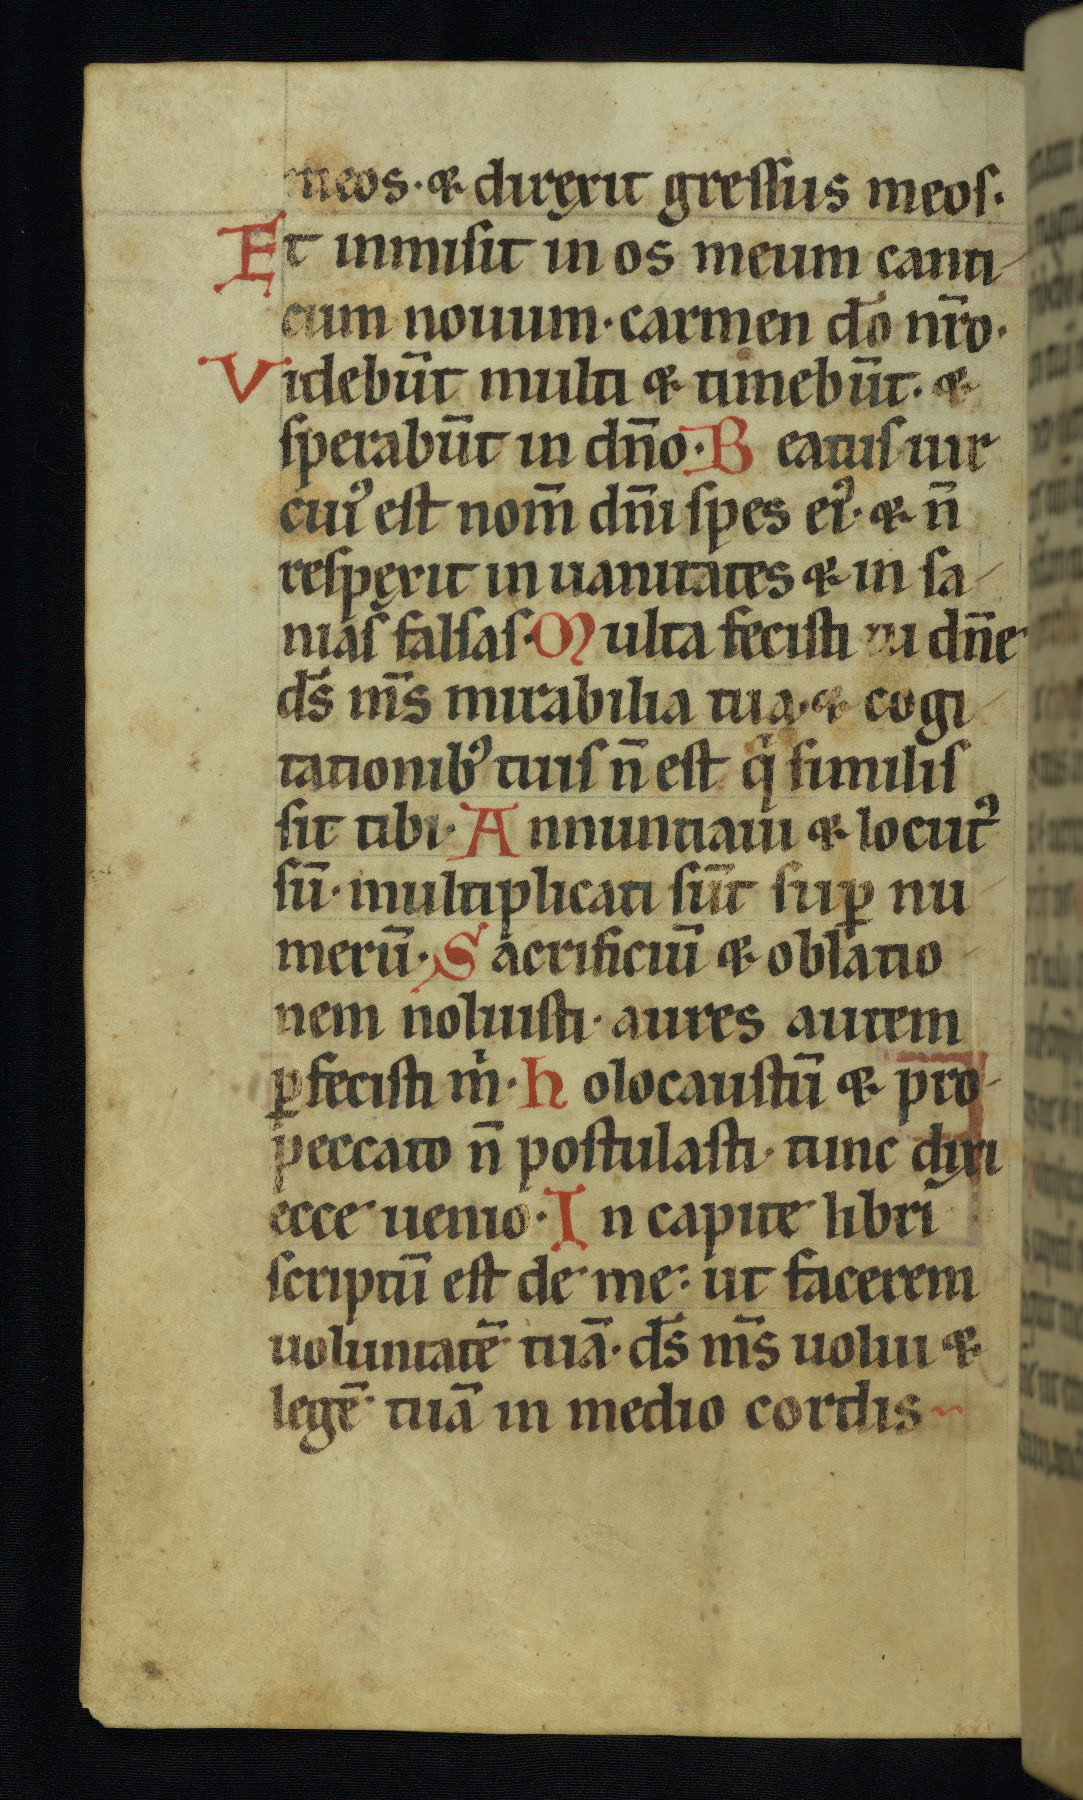 meos · & direxit gressus meos ·
Et inmisit in os meum canti
cum nouum · carmen do̅ nr̅o ·
Videbu̅t multi & timebu̅t · &
sperabu̅t in dn̅o · Beatus uir
cuiꝰ est nom̅ dn̅i spes eiꝰ · & n̅
respexit in uanitates & in sa
nias falsas · Multa fecisti tu dn̅e
ds̅ ms̅ mirabilia tua · & cogi
tationibꝰ tuis n̅ est qͥ similis
sit tibi · Annuntiaui & locutꝰ
su̅ · multiplicati su̅t suꝑ nu
meru̅ · Sacrificiu̅ & oblatio
nem noluisti · aures autem
ꝑfecisti mͥ · holocaustu̅ & pro
peccato n̅ postulasti · tunc dixi
ecce uenio · In capite libri
scriptu̅ est de me : ut facerem
uoluntate̅ tua̅ · ds̅ ms̅ uolui &
lege̅ tua̅ in medio cordis